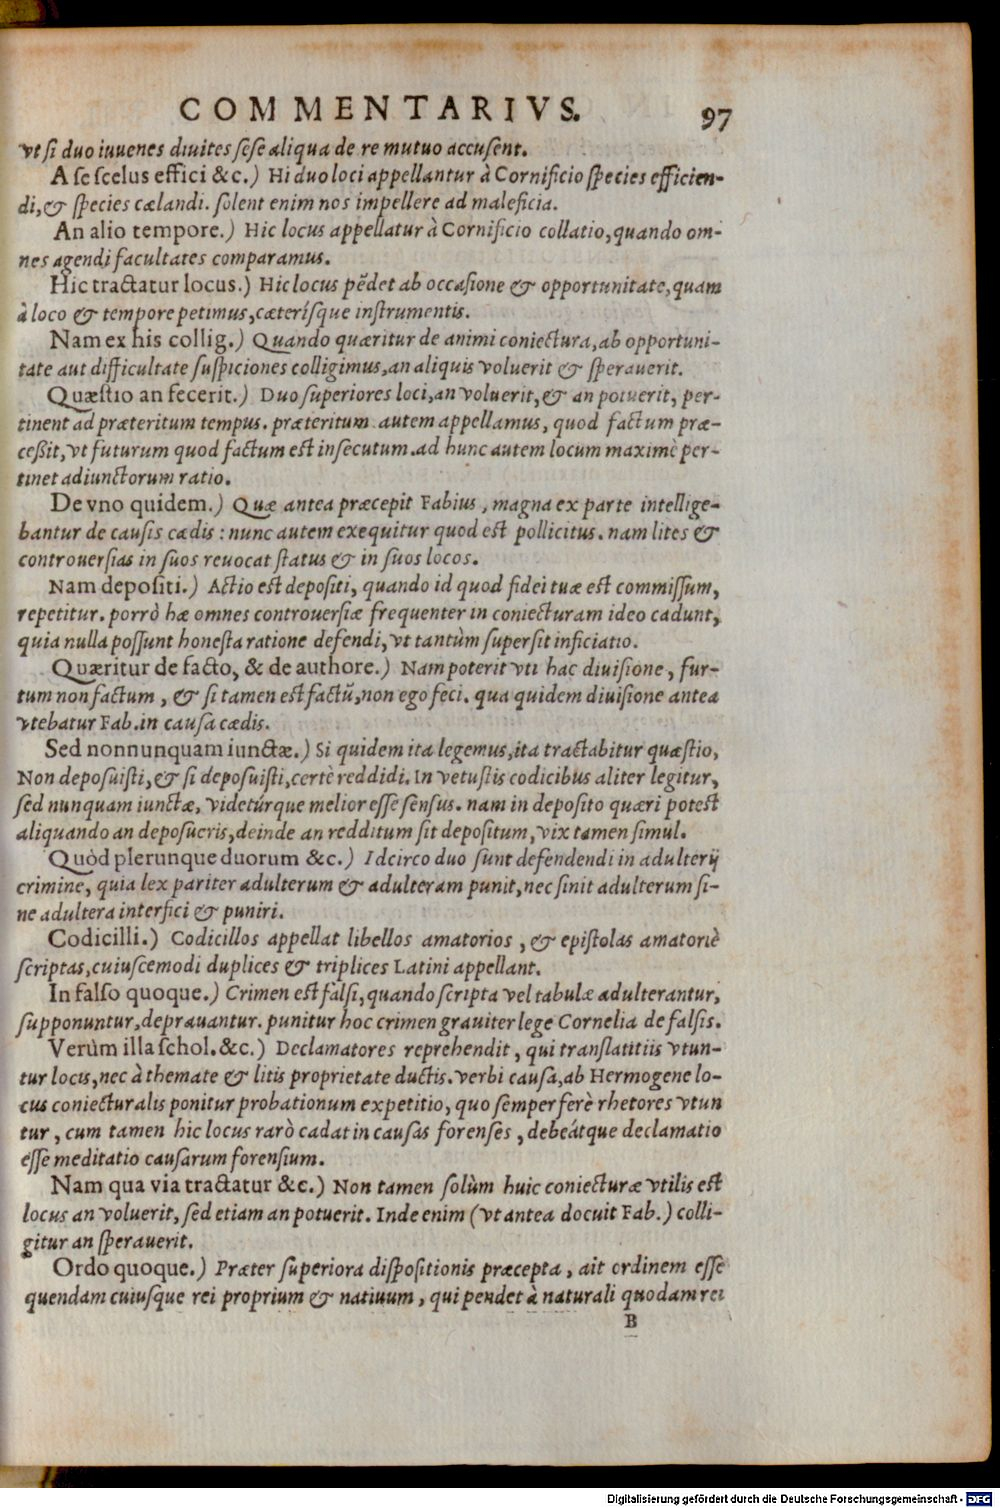 COMMENTARIVS. 97
vt si duo iuuenes diuites sese aliqua de re mutuo accusent.
A se scelus effici &c.) Hi duo loci appellantur à Cornificio species efficien-
di, & species cælandi. solent enim nos impellere ad maleficia.
An alio tempore.) Hic locus appellatur à Cornificio collatio, quando om-
nes agendi facultates comparamus.
Hic tractatur locus.) Hic locus pēdet ab occasione & opportunitate, quam
à loco & tempore petimus, cæterísque instrumentis.
Nam ex his collig.) Quando quæritur de animi coniectura, ab opportuni-
tate aut difficultate suspiciones colligimus, an aliquis voluerit & sperauerit.
Quæstio an fecerit.) Duo superiores loci, an voluerit, & an potuerit, per-
tinent ad præteritum tempus. præteritum autem appellamus, quod factum præ-
ceßit, vt futurum quod factum est insecutum. ad hunc autem locum maximè per-
tinet adiunctorum ratio.
De vno quidem.) Quæ antea præcepit Fabius, magna ex parte intellige-
bantur de causis cædis: nunc autem exequitur quod est pollicitus. nam lites &
controuersias in suos reuocat status & in suos locos.
Nam depositi.) Actio est depositi, quando id quod fidei tuæ est commissum,
repetitur. porrò hæ omnes controuersiæ frequenter in coniecturam ideo cadunt,
quia nulla possunt honesta ratione defendi, vt tantùm supersit inficiatio.
Quæritur de facto, & de authore.) Nam poterit vti hac diuisione, fur-
tum non factum, & si tamen est factū, non ego feci. qua quidem diuisione antea
vtebatur Fab. in causa cædis.
Sed nonnunquam iunctæ.) Si quidem ita legemus, ita tractabitur quæstio,
Non deposuisti, & si deposuisti, certè reddidi. In vetustis codicibus aliter legitur,
sed nunquam iunctæ, videtúrque melior esse sensus. nam in deposito quæri potest
aliquando an deposueris, deinde an redditum sit depositum, vix tamen simul.
Quòd plerunque duorum &c.) Idcirco duo sunt defendendi in adulterij
crimine, quia lex pariter adulterum & adulteram punit, nec sinit adulterum si-
ne adultera interfici & puniri.
Codicilli.) Codicillos appellat libellos amatorios, & epistolas amatoriè
scriptas, cuiuscemodi duplices & triplices Latini appellant.
In falso quoque.) Crimen est falsi, quando scripta vel tabulæ adulterantur,
supponuntur, deprauantur. punitur hoc crimen grauiter lege Cornelia de falsis.
Verùm illa schol. &c.) Declamatores reprehendit, qui translatitiis vtun-
tur locis, nec à themate & litis proprietate ductis. verbi causa, ab Hermogene lo-
cus coniecturalis ponitur probationum expetitio, quo semper ferè rhetores vtun
tur, cum tamen hic locus rarò cadat in causas forenses, debeátque declamatio
esse meditatio causarum forensium.
Nam qua via tractatur &c.) Non tamen solùm huic coniecturæ vtilis est
locus an voluerit, sed etiam an potuerit. Inde enim (vt antea docuit Fab.) colli-
gitur an sperauerit.
Ordo quoque.) Præter superiora dispositionis præcepta, ait ordinem esse
quendam cuiusque rei proprium & natiuum, qui pendet à naturali quodam rei
B
Digitalisierung gefördert durch die Deutsche Forschungsgemeinschaft - DFG